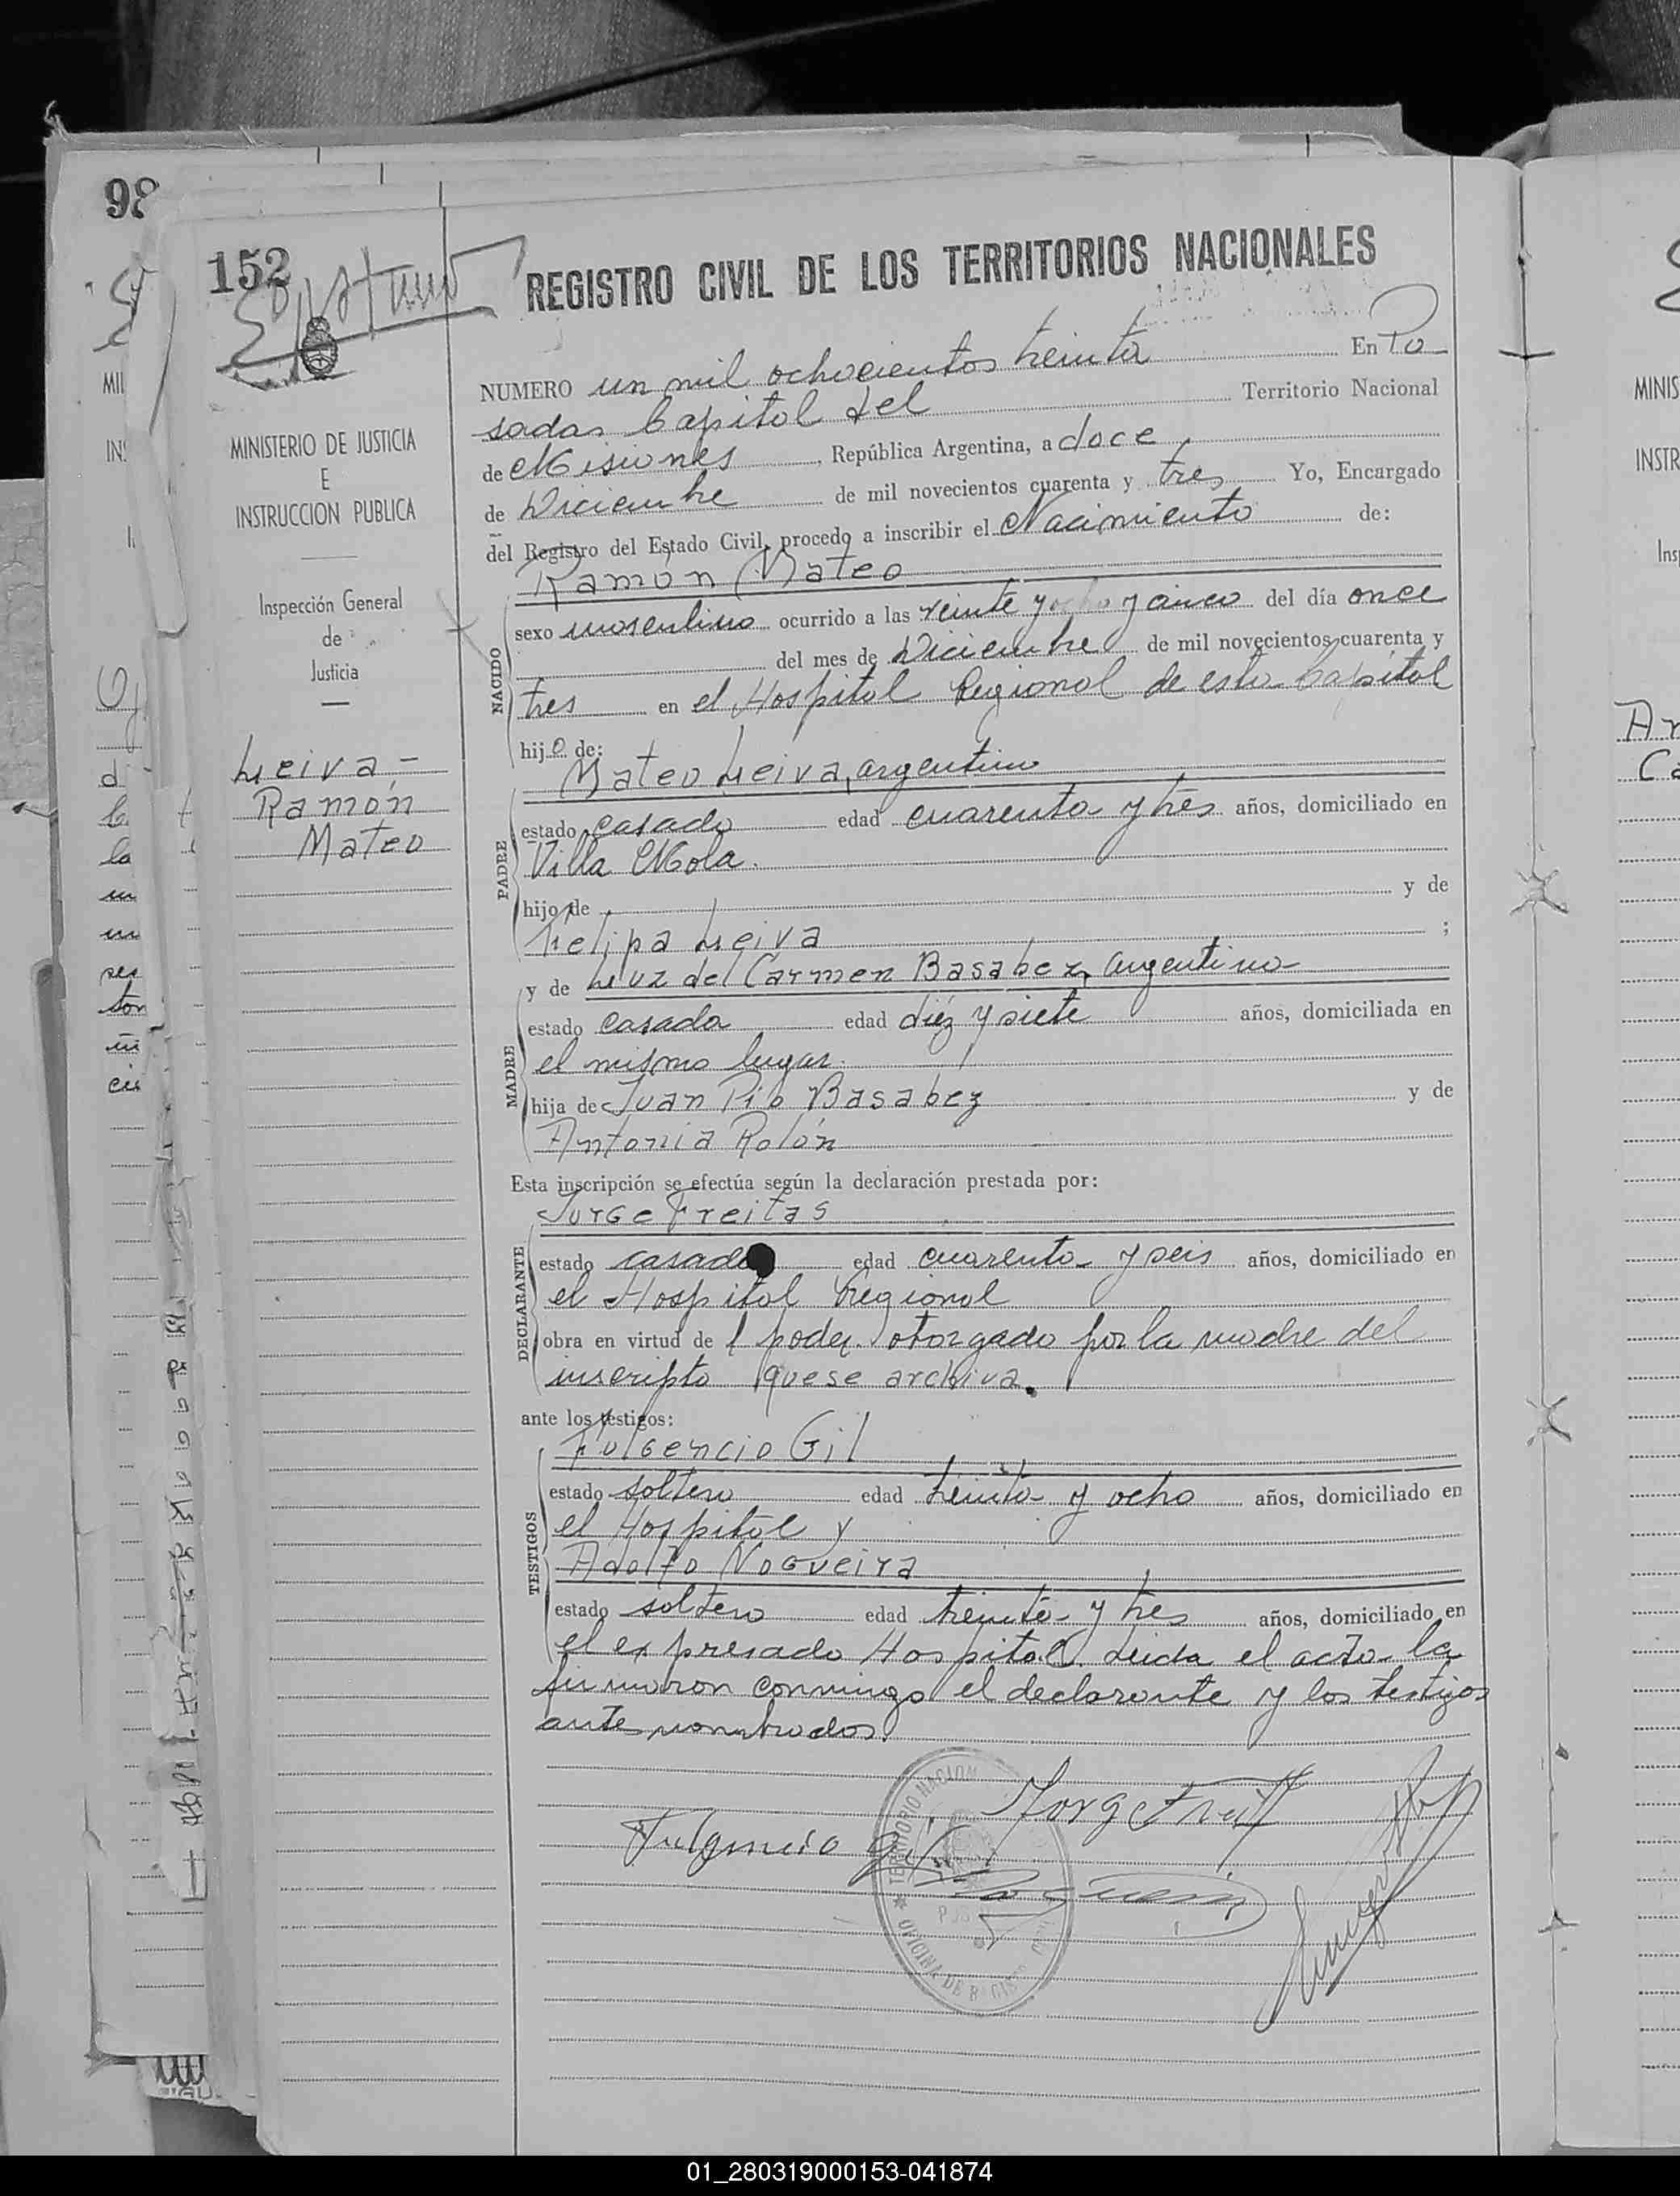 98
152
REGISTRO CIVIL DE LOS TERRITORIOS NACIONALES
NUMERO un mil ochocientos treinta En Po
sadas Capital del Territorio Nacional
de Misiones, República Argentina, a doce
de Diciembre de mil novecientos cuarenta y tres Yo, Encargado
del Registro del Estado Civil, procedo a inscribir el Nacimiento de:
MINISTERIO DE JUSTICIA
E
INSTRUCCION PUBLICA
Inspección General
de
Justicia
Leiva-
Ramón
Mateo
NACIDO
Ramón Mateo
sexo masculino ocurrido a las veinte y cinco del día once
del mes de Diciembre de mil novecientos cuarenta y
tres en el Hospital Regional de esta Capital
hijo de:
PADRE
Mateo Leiva, argentino
estado casado edad cuarenta y tres años, domiciliado en
Villa Mola.
hijo de y de
Felipa Leiva ;
MADRE
y de Luz del Carmen Basabez, argentina
estado casada edad diéz y siete años, domiciliada en
el mismo lugar.
hija de Juan Pío Basabez y de
Antonia Rolón
Esta inscripción se efectúa según la declaración prestada por:
DECLARANTE
Jorge Freitas
estado casado edad cuarenta y seis años, domiciliado en
el Hospital Regional
obra en virtud de l poder otorgado por la madre del
inscripto que se archiva.
ante los testigos:
TESTIGOS
Fulgencio Gil
estado soltero edad treinta y ocho años, domiciliado en
el Hospital y
Adolfo Nogueira
estado soltero edad treinta y tres años, domiciliado en
el expresado Hospital. Leida el acta la
firmaron conmigo el declarante y los testigos
ante nombrados.
Jorge Freit
Fulgencio Gil
TERRITORIO NACION
OFICINA DE
MINIS
INSTR
Ins
01_280319000153-041874